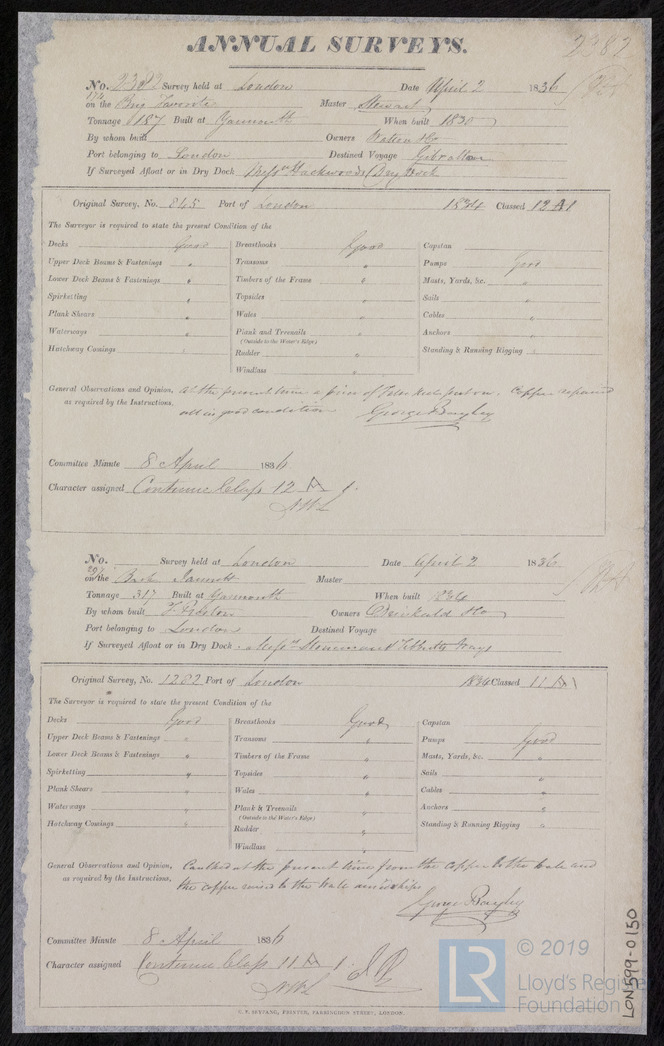 ANNUAL SURVEYS.
2382
No. 2382 Survey held at London Date April 2 1836
on the Brig Favorite Master Stewart
Tonnage 187 Built at Yarmouth When built 1830
By whom built Owners
Port belonging to London Destined Voyage Gibraltar
If Surveyed Afloat or in Dry Dock
Original Survey, No. 845 Port of London 1834 Classed 12 A1
The Surveyor is required to state the present Condition of the
Decks Good Breasthooks Good Capstan
Upper Deck Beams & Fastenings " Transoms " Pumps Good
Lower Deck Beams & Fastenings " Timbers of the Frame " Masts, Yards, &c. "
Spirketting " Topsides " Sails "
Plank Shears " Wales " Cables "
Waterways " Plank and Treenails " Anchors "
(Outside to the Water's Edge)
Hatchway Comings " Rudder " Standing & Running Rigging "
Windlass "
General Observations and Opinion, at the present time a piece of False Keel put on. Copper repaired
as required by the Instructions. all in good condition George Bayley
Committee Minute 8 April 1836
Character assigned Continue Class 12 A 1.
No. Survey held at London Date April 2 1836
on the Bark Master
Tonnage 317 Built at Yarmouth When built 1834
By whom built Owners
Port belonging to London Destined Voyage
If Surveyed Afloat or in Dry Dock
Original Survey, No. 1202 Port of London 1834 Classed 11 A1
The Surveyor is required to state the present Condition of the
Decks Good Breasthooks Good Capstan
Upper Deck Beams & Fastenings " Transoms " Pumps Good
Lower Deck Beams & Fastenings " Timbers of the Frame " Masts, Yards, &c. "
Spirketting " Topsides " Sails "
Plank Shears " Wales " Cables "
Waterways " Plank & Treenails " Anchors "
(Outside to the Water's Edge)
Hatchway Comings " Rudder " Standing & Running Rigging "
Windlass "
General Observations and Opinion, Caulked at the present time from the copper to the wale and
as required by the Instructions. the copper raised to the wale amidships
George Bayley
Committee Minute 8 April 1836
Character assigned Continue Class 11 A 1.
PRINTER, FARRINGDON STREET, LONDON.
LON599-0150
LR
© 2019
Lloyd's Register
Foundation